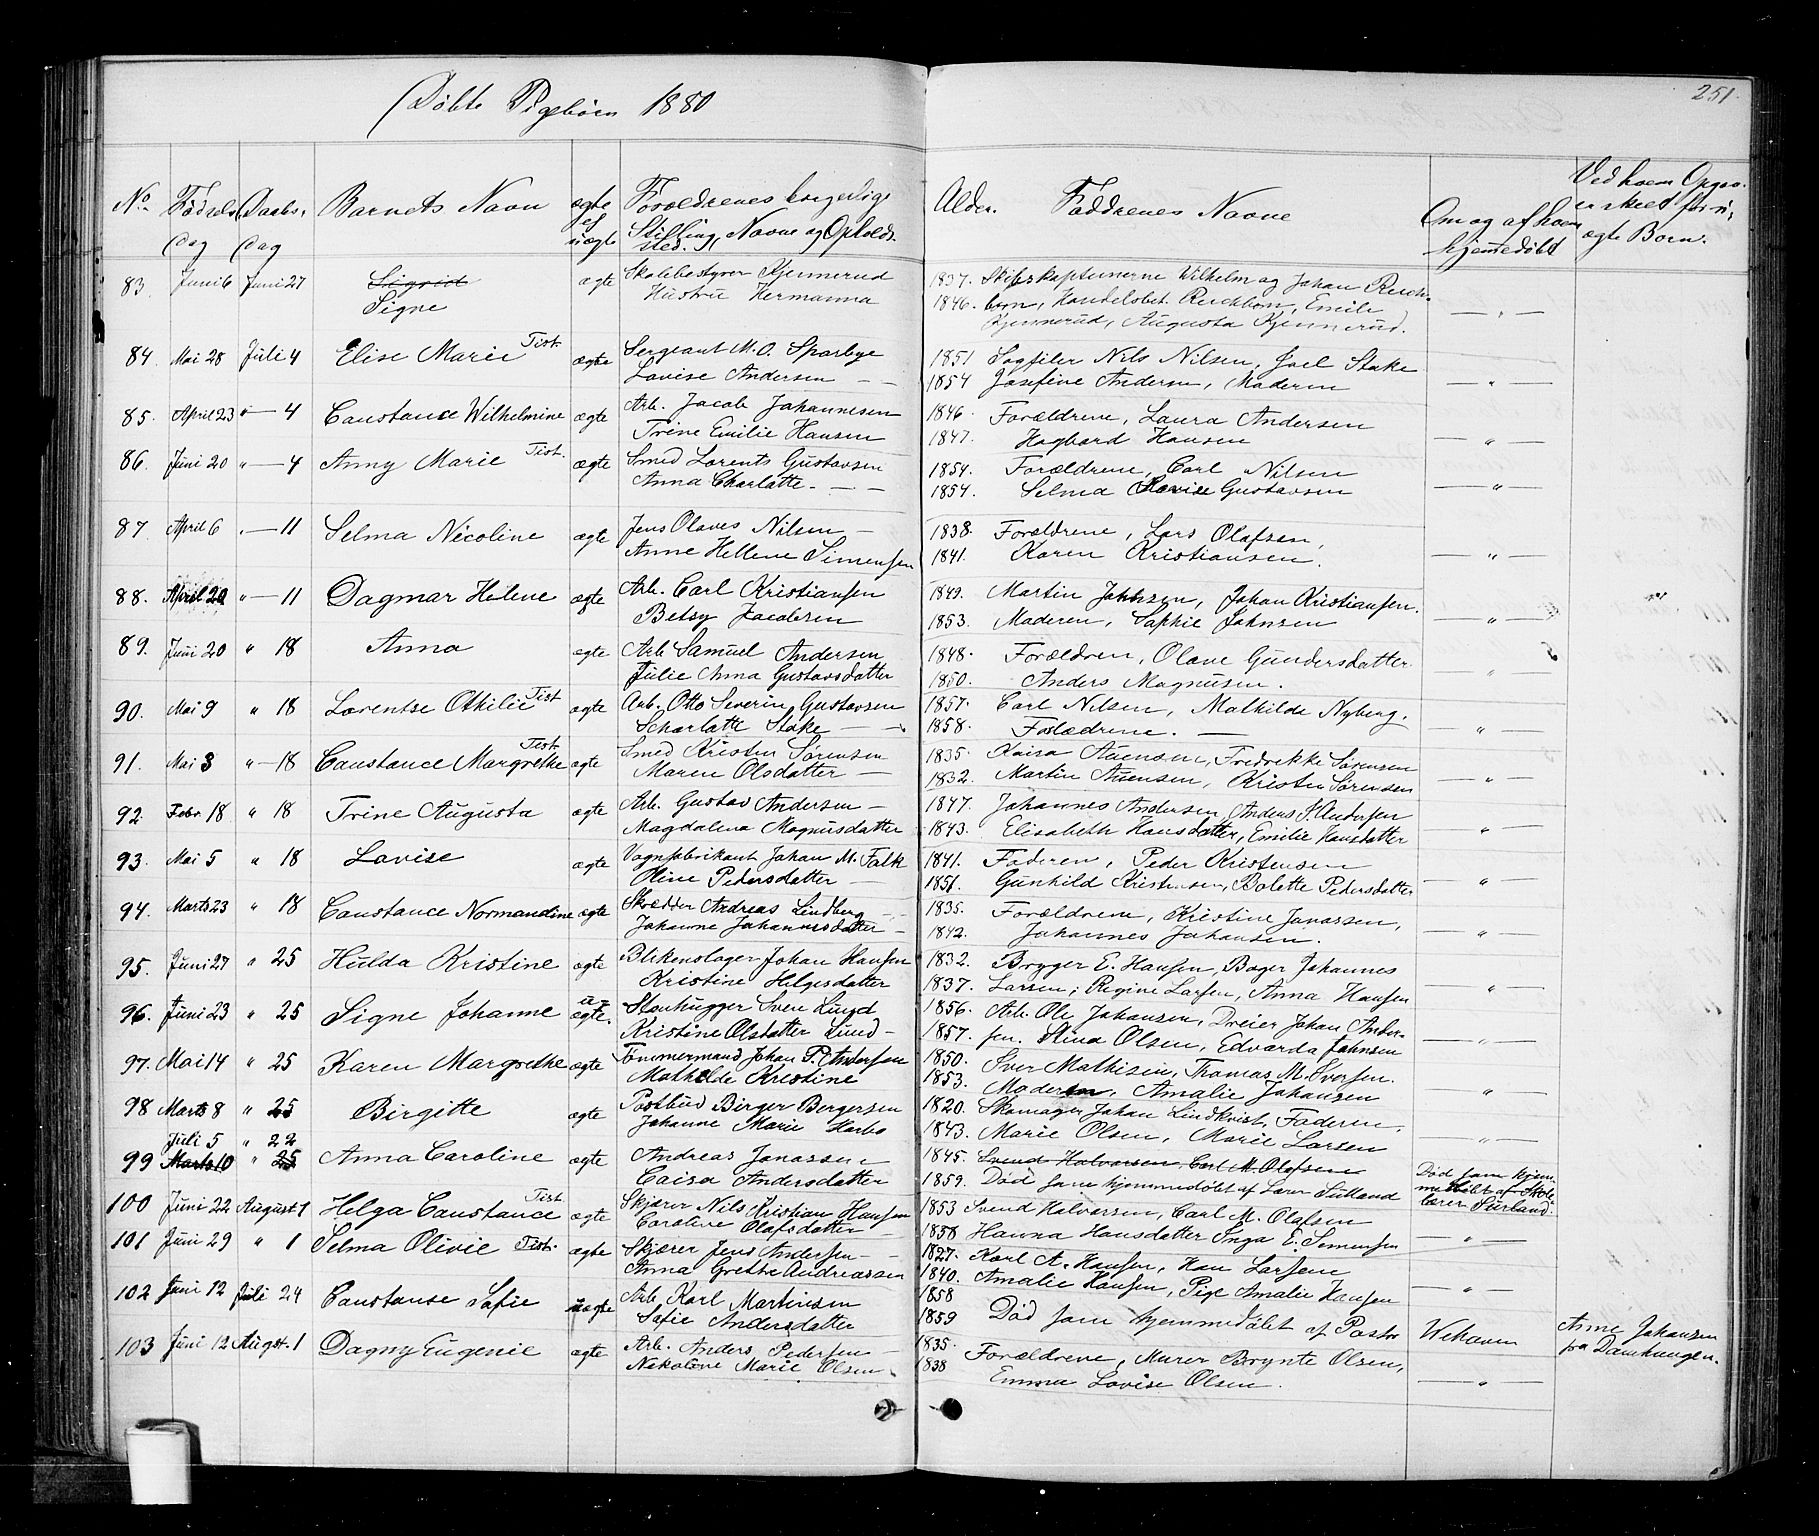 Døbte Pigebørn 1880
251.
No. Fødsels Dag Daabs Dag Barnets Navn ægte el uægte Forældrenes borgerlige Stilling, Navne og Opholdssted. Alder. Faddrenes Navne Om og af hvem hjemmedøbt Ved hvem Opgav. er skeet for uægte Børn.
83. Juni 6 Juni 27 Sigrid ægte Skolebestyrer Kjennerud 1837. Skibskapteinerne Wilhelm og Johan Reich-
Signe Hustru Hermanna 1846. born, Handelsbet. Reichborn, Emilie
Kjennerud, Augusta Kjennerud. — " —
84. Mai 28 Juli 4 Elise Marie Tist. ægte Sergeant M. O. Sparbye 1851 Sagfiler Nils Nilsen, Joel Stake
Lovise Andersen — — 1854 Josefine Andersen, Moderen — " —
85. April 23 " — 4 Constance Wilhelmine ægte Arb. Jacob Johannesen 1846. Forældrene, Laura Andersen
Trine Emilie Hansen 1847. Hagbard Hansen — " —
86. Juni 20 " — 4 Anny Marie Tist. ægte Smed Lorents Gustavsen 1854. Forældrene, Carl Nilsen
Anna Charlotte — — 1854. Selma Lovise Gustavsen — " —
87. April 6 " — 11 Selma Nicoline ægte Jens Olaves Nilsen — 1838. Forældrene, Lars Olafsen,
Anne Hellene Simensen 1841. Karen Kristiansen. — " —
88. April 20 " — 11 Dagmar Helene ægte Arb. Carl Kristiansen 1849. Martin Johnsen, Johan Kristiansen.
Betsy Jacobsen 1853. Moderen, Sophie Johnsen — " —
89. Juni 20 " 18 Anna ægte Arb Samuel Andersen 1848. Forældren, Olave Gundersdatter
Julie Anna Gustavsdatter 1850. Anders Magnusen. "
90. Mai 9 " 18 Lorentse Othilie Tist ægte Arb. Otto Severin Gustavsen 1857. Carl Nilsen, Mathilde Nyberg.
Scharlotte Stake — 1858. Forældrene. — — " —
91. Mai 3 " — 18 Constance Margrethe Tist ægte Smed Kristen Sørensen 1835 Kaisa Auensen, Fredrekke Sørensen
Maren Olsdatter — 1832. Martin Auensen, Kristen Sørensen — " —
92. Febr. 18 " 18 Trine Augusta ægte Arb. Gustav Andersen — 1847. Johannes Andersen, Anders P. Andersen
Magdalena Magnusdatter 1843. Elisabeth Hansdatter, Emilie Hansdatter "
93. Mai 5 " 18 Lovise ægte Vognfabrikant Johan M. Falk 1841. Faderen, Peder Kristensen
Oline Pedersdatter — 1851. Gunhild Kristensen, Bolette Pedersdatter — " —
94. Marts 23 " 18 Constance Normandine ægte Skrædder Andreas Lindberg 1835. Forældrene, Kristine Jonassen,
Johanne Johannesdatter — 1842. Johannes Johansen. — " —
95. Juni 27 " 25 Hulda Kristine ægte Blikenslager Johan Hansen 1832. Brygger E. Hansen, Bager Johannes
Kristine Helgesdatter 1837. Larsen, Regine Larsen, Anna Hansen — " —
96. Juni 23 " 25 Signe Johanne uægte Stenhugger Sven Lund 1856. Arb. Ole Johansen, Dreier Johan Ander-
Kristine Olsdatter Lund — 1857. sen. Stina Olsen, Edvarda Johnsen — " —
97. Mai 14 " 25 Karen Margrethe ægte Tømmermand Johan P. Andersen 1850. Sver Mathisen, Thomas M. Sversen.
Mathilde Kristine 1853. Moderen, Amalie Johansen "
98 Marts 8 " 25 Birgitte ægte Postbud Birger Bergersen 1820. Skomager Johan Lindkvist, Faderen,
Johanne Marie Horbo 1843. Marie Olsen, Marie Larsen — " —
Juli 5 " 22
99 Marts 10 " 25 Anna Caroline ægte Andreas Jonassen 1845. Svend Halvorsen, Carl M. Olafsen
Caisa Andersdatter 1859. Død som hjemmedøbt af Lærer Surland Død som hjem-
medøbt af Skole
lærer Surland.
100 Juni 22 August 1 Helga Constance Tist. ægte Skjærer Nils Kristian Hansen 1853 Svend Halvorsen, Carl M. Olafsen
Caroline Olafsdatter 1858 Hanna Hansdatter Inga E. Simensen — " —
101 Juni 29 " 1 Selma Olivie Tist. ægte Skjærer Jens Andersen — 1827. Karl A. Hansen, Han Larsene
Anna Grethe Andreassen 1840. Amalie Hansen, Pige Amalie Hansen — " —
102 Juni 12 Juli 24 Constanse Sofie uægte Arb Karl Martinsen 1858
Sofie Andersdatter 1859 Død som hjemmedøbt af Pastor Wehaven Anne Johansen
fra Damhaugen.
103 Juni 12 Augst. 1 Dagny Eugenie ægte Arb. Anders Pedersen — 1835. Forældrene, Murer Brynte Olsen,
Nikoline Marie Olsen 1838 Emma Lovise Olsen. — " —